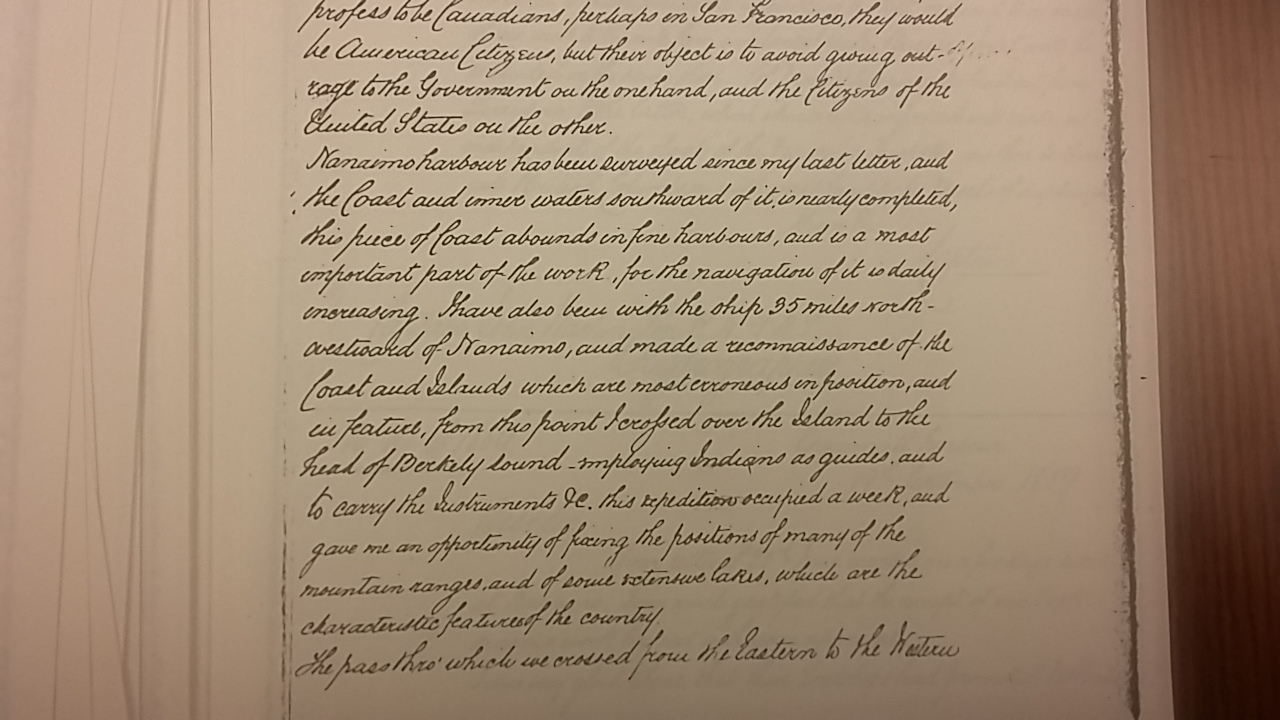 profess to be Canadians, perhaps in San Francisco, they would
be American Citizens, but their object is to avoid giving out-
rage to the Government on the one hand, and the Citizens of the
United States on the other.
Nanaimo harbour has been surveyed since my last letter, and
the Coast and inner waters southward of it, is nearly completed,
this piece of Coast abounds in fine harbours, and is a most
important part of the work, for the navigation of it is daily
increasing. I have also been with the ship 35 miles north-
westward of Nanaimo, and made a reconnaissance of the
Coast and Islands which are most erroneous in position, and
in feature, from this point I crossed over the Island to the
head of Berkely sound - employing Indians as guides, and
to carry the Instruments &c. this expedition occupied a week, and
gave me an opportunity of fixing the positions of many of the
mountain ranges, and of some extensive lakes, which are the
characteristic features of the country.
The pass thro' which we crossed from the Eastern to the Western